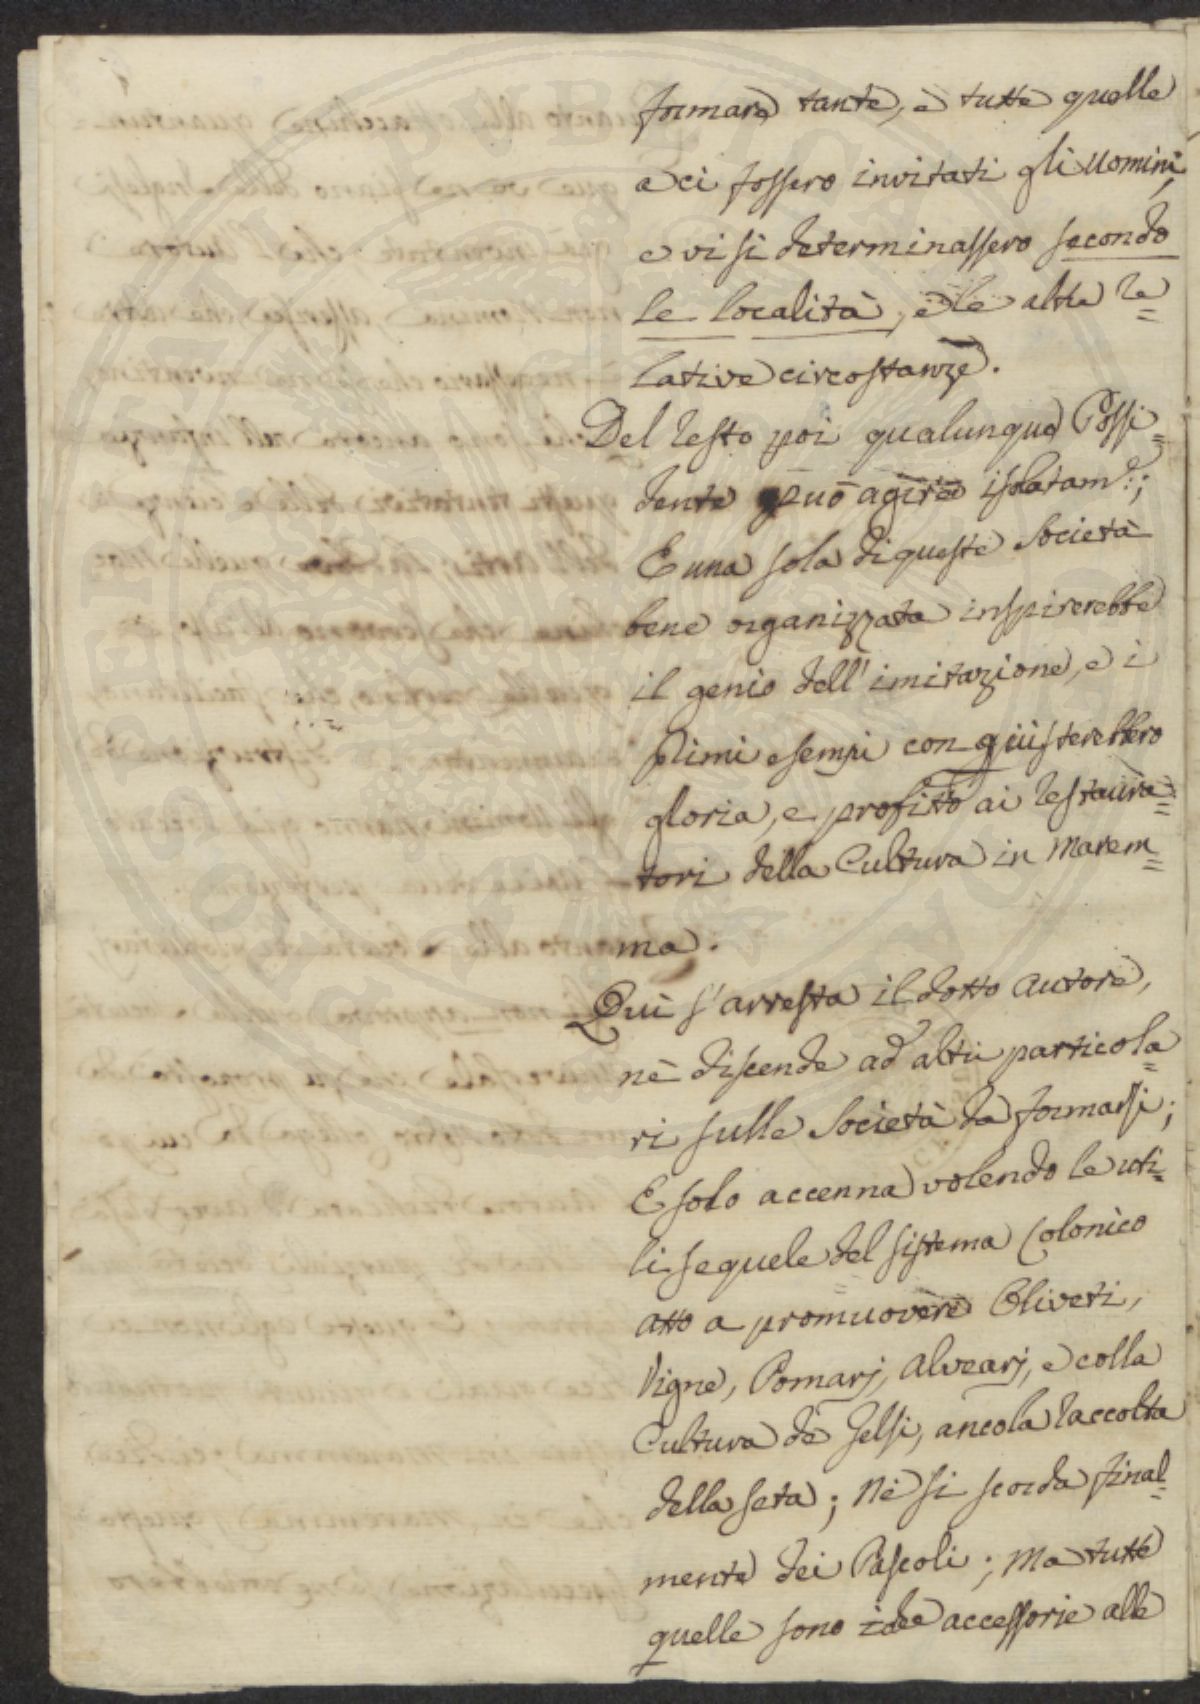 formare tante, e tutte quelle
a ci fossero invitati gli Uomini,
e vi si determinassero secondo
le località, e le altre re=
lative circostanze.
Del resto poi qualunque Possi=
dente può agire isolatam:e;
E una sola di queste Società
bene organizzata inspirerebbe
il genio dell'imitazione, e i
primi esempi con
gloria, e profitto ai restaura=
tori della Cultura in Marem=
ma.
Quì s'arresta il dotto autore,
nè discende ad altri particola=
ri sulle Società da formarsi;
E solo accenna volendo le uti=
li sequele del sistema Colonico
atto a promuovere Oliveti,
Vigne, Pomarj, Alvearj, e colla
Cultura de Gelsi, ancola raccolta
della seta; Nè si scorda final=
mente dei Pascoli; Ma tutte
quelle sono idee accessorie alle